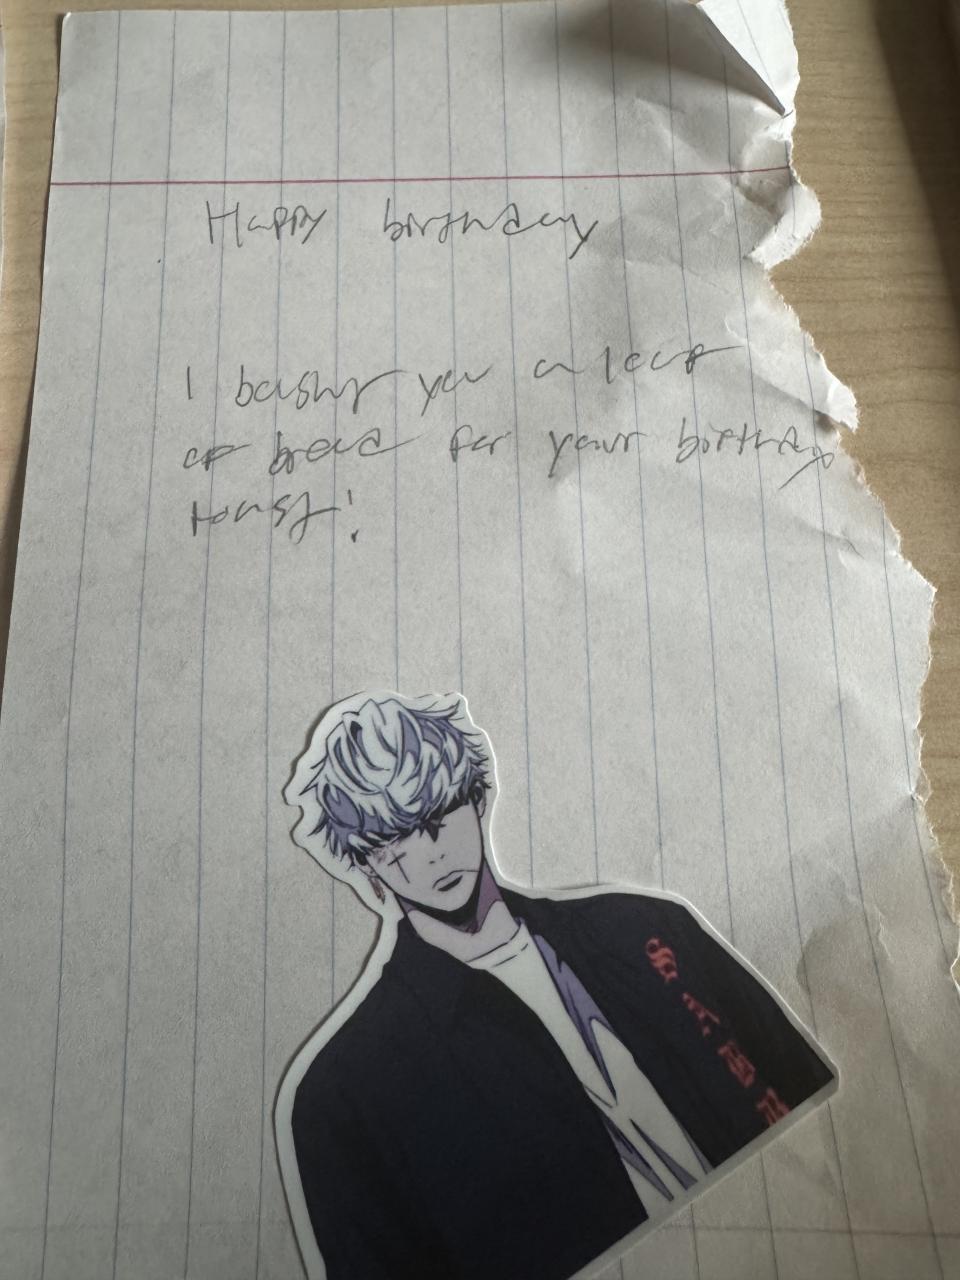 Happy birthday
I bought you a loaf
of bread for your birthday
toast!
SABB